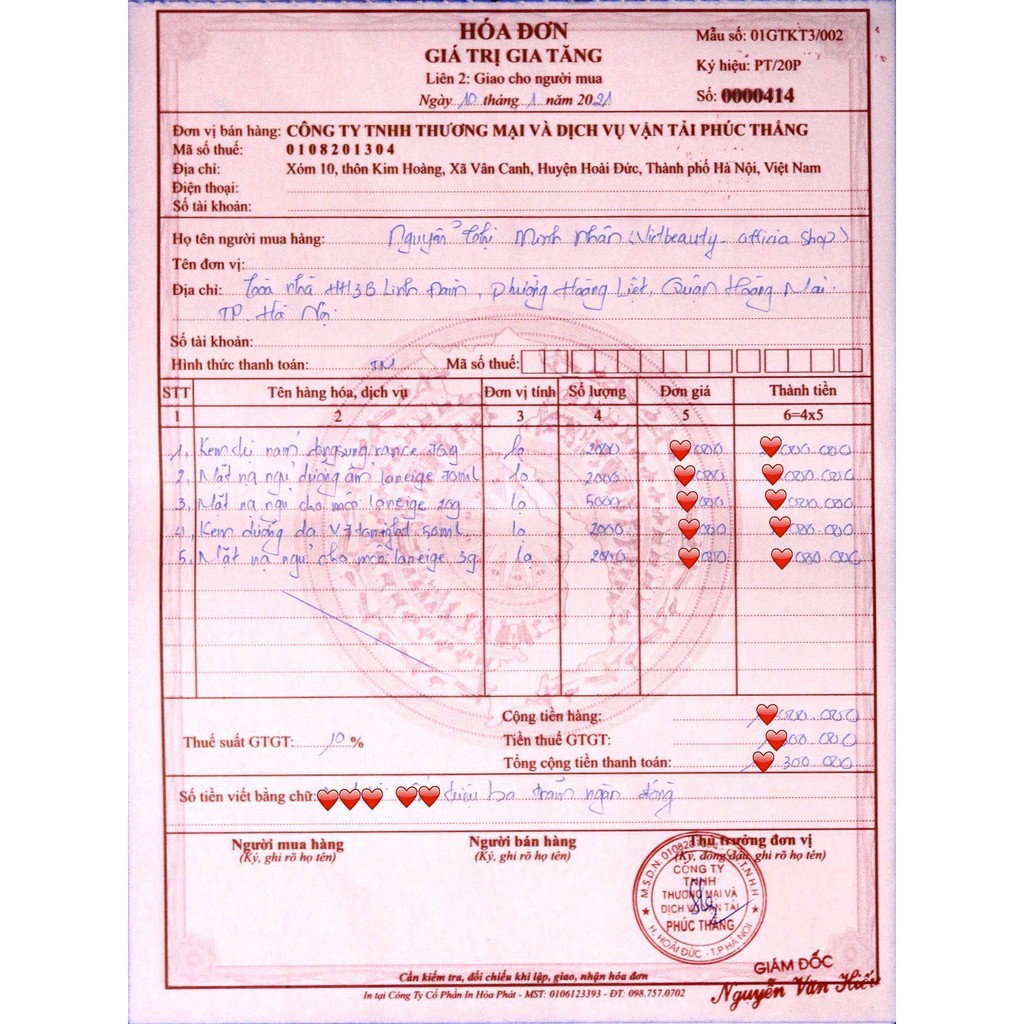 HÓA ĐƠN
GIÁ TRỊ GIA TĂNG
Liên 2: Giao cho người mua
Ngày 10 tháng 1 năm 2021
Mẫu số: 01GTKT3/002
Ký hiệu: PT/20P
Số: 0000414
Đơn vị bán hàng: CÔNG TY TNHH THƯƠNG MẠI VÀ DỊCH VỤ VẬN TẢI PHÚC THẮNG
Mã số thuế: 0108201304
Địa chỉ: Xóm 10, thôn Kim Hoàng, Xã Vân Canh, Huyện Hoài Đức, Thành phố Hà Nội, Việt Nam
Điện thoại:
Số tài khoản:
Họ tên người mua hàng: Nguyễn Thị Minh Nhân (Vietbeauty. officia shop)
Tên đơn vị:
Địa chỉ: Toà nhà HH3B Linh Đàm, Phường Hoàng Liệt, Quận Hoàng Mai.
TP. Hà Nội.
Số tài khoản:
Hình thức thanh toán: TM Mã số thuế:
STT Tên hàng hóa, dịch vụ Đơn vị tính Số lượng Đơn giá Thành tiền
1 2 3 4 5 6=4x5
1. Kem nám dongsung rance lọ 2000 000 000.000
2. Mặt nạ ngủ dưỡng ẩm laneige 70ml lọ 2000 000 000.000
3. Mặt nạ ngủ cho môi laneige 20g lọ 5000 000 000.000
4. Kem dưỡng da V7 50ml lọ 2000 000 000.000
5. Mặt nạ ngủ cho môi laneige 3g lọ 2000 000 000.000
Cộng tiền hàng: 000.000
Thuế suất GTGT: 10 % Tiền thuế GTGT: 00.000
Tổng cộng tiền thanh toán: 300.000
Số tiền viết bằng chữ: triệu ba trăm ngàn đồng
Người mua hàng Người bán hàng Thủ trưởng đơn vị
(Ký, ghi rõ họ tên) (Ký, ghi rõ họ tên) (Ký, đóng dấu, ghi rõ họ tên)
CÔNG TY
TNHH
THƯƠNG MẠI VÀ
DỊCH VỤ VẬN TẢI
PHÚC THẮNG
H. HOÀI ĐỨC - T.P HÀ NỘI
GIÁM ĐỐC
Nguyễn Văn Hiếu
Cần kiểm tra, đối chiếu khi lập, giao, nhận hóa đơn
In tại Công Ty Cổ Phần In Hòa Phát - MST: 0106123393 - ĐT: 098.757.0702